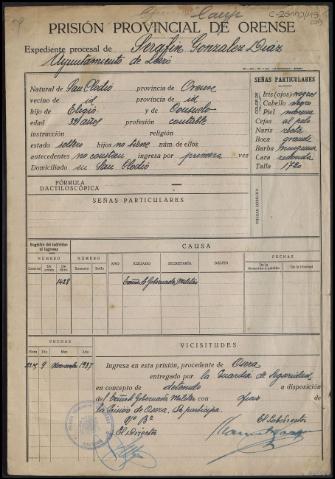 C-25
PRISIÓN PROVINCIAL DE ORENSE
Expediente procesal de Serafin Gonzalez Diaz
Ayuntamiento de Leiro
Natural de San Clodio provincia de Orense
vecino de id provincia de id
hijo de Eligio y de Consuelo
edad años profesión contable
instrucción religión
estado soltero no tiene núm. de ellos
antecedentes no constan ingresa por primera vez
Domiciliado en San Clodio
SEÑAS PARTICULARES
Iris (ojos) negros
Cabello negro
Piel morena
Cejas al pelo
Nariz chata
Boca grande
Barba
Cara redonda
Talla 1720
FÓRMULA
DACTILOSCÓPICA
SEÑAS PARTICULARES
Registro del individuo
al ingreso
CAUSA
NÚMERO
NÚMERO
AÑO
JUZGADO
SECRETARÍA
DELITO
FECHAS
1428
Exmº Sr Gobernador Militar
FECHAS
VICISITUDES
Día
Mes
Año
9 Noviembre 1937
Ingresa en esta prisión, procedente de Osera
entregado por la Guardia de Seguridad,
en concepto de detenido a disposición
del Exmº Sr Gobernador Militar con
la Prisión de Osera. Se participa.
Vº Bº
El Director
El Subdirector